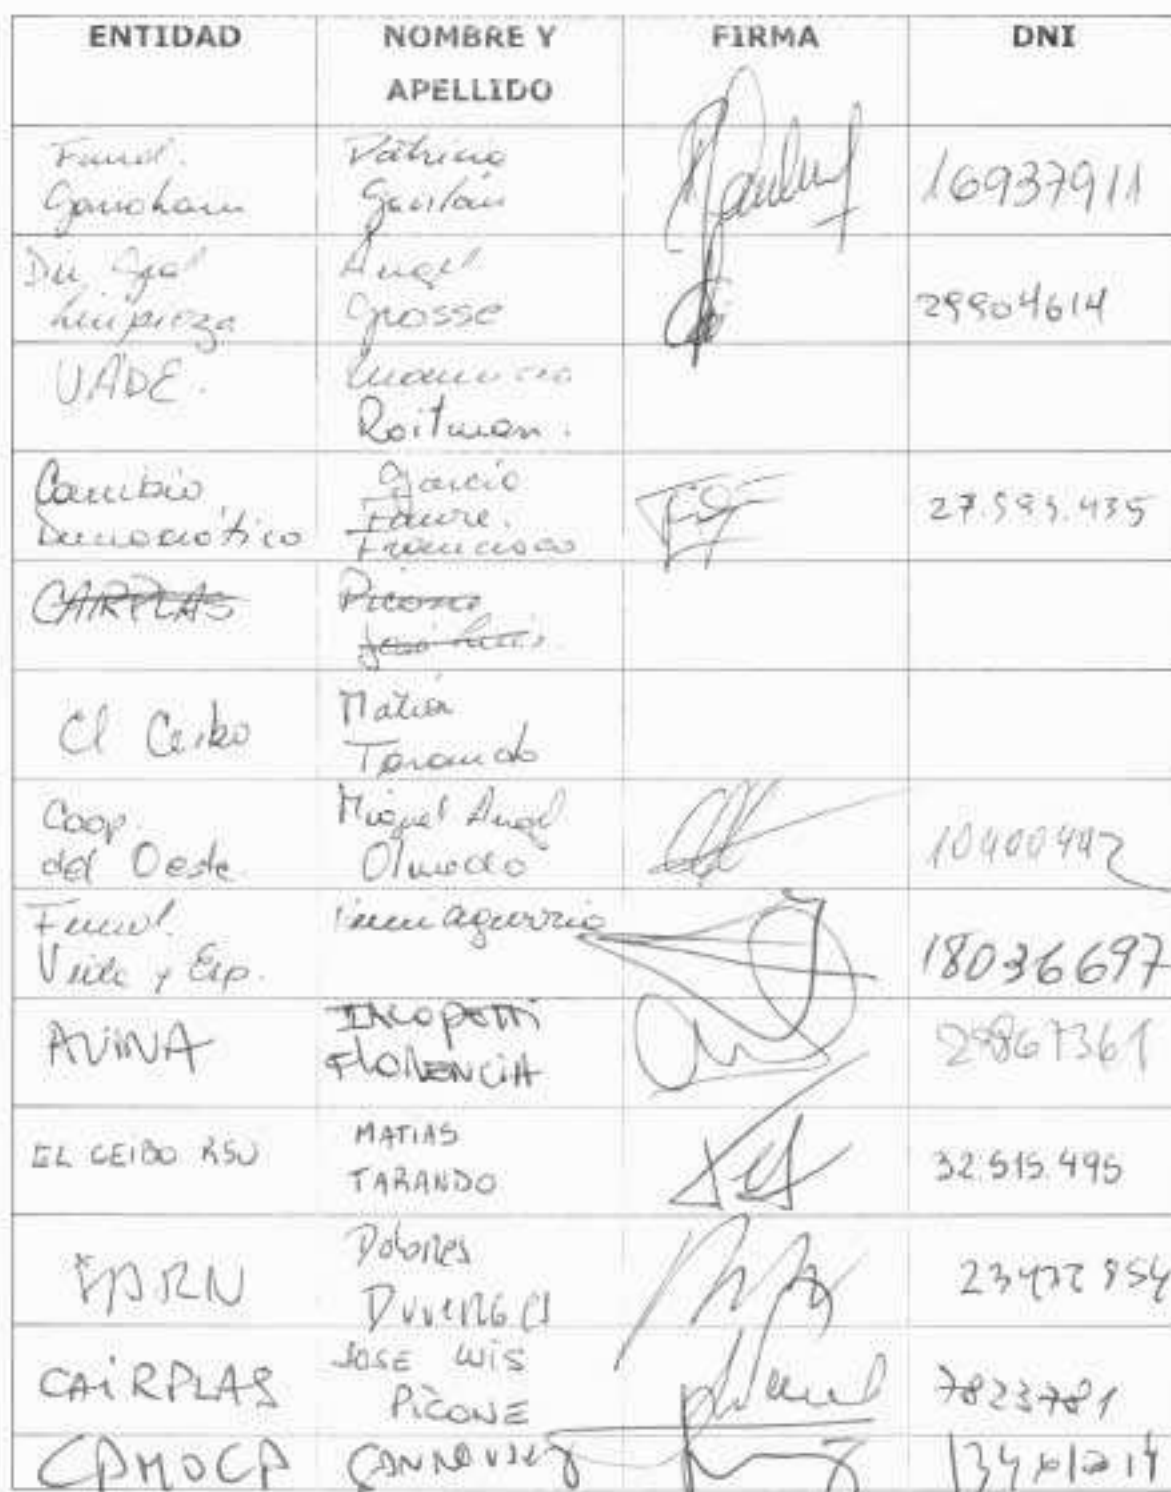 ENTIDAD
NOMBRE Y
APELLIDO
FIRMA
DNI
Fund.
Garrahan
Patricia
Gavilán
16937911
Dir Gral
Limpieza
Angel
Grosse
29904614
UADE.
Mauricio
Roitman.
Cambio
Democrático
García
Faure.
Francisco
27.593.435
CAIRPLAS
Picone
José Luis.
El Ceibo
Matías
Tarando
Coop.
del Oeste
Miguel Angel
Olmedo
10400442
Fund.
Vida y Esp.
18036697
AVINA
IACOPETTI
FLORENCIA
29867361
EL CEIBO RSU
MATIAS
TARANDO
32.515.495
FARN
Dolores
Duverges
CAIRPLAS
JOSE LUIS
PICONE
7823781
CAMOCA